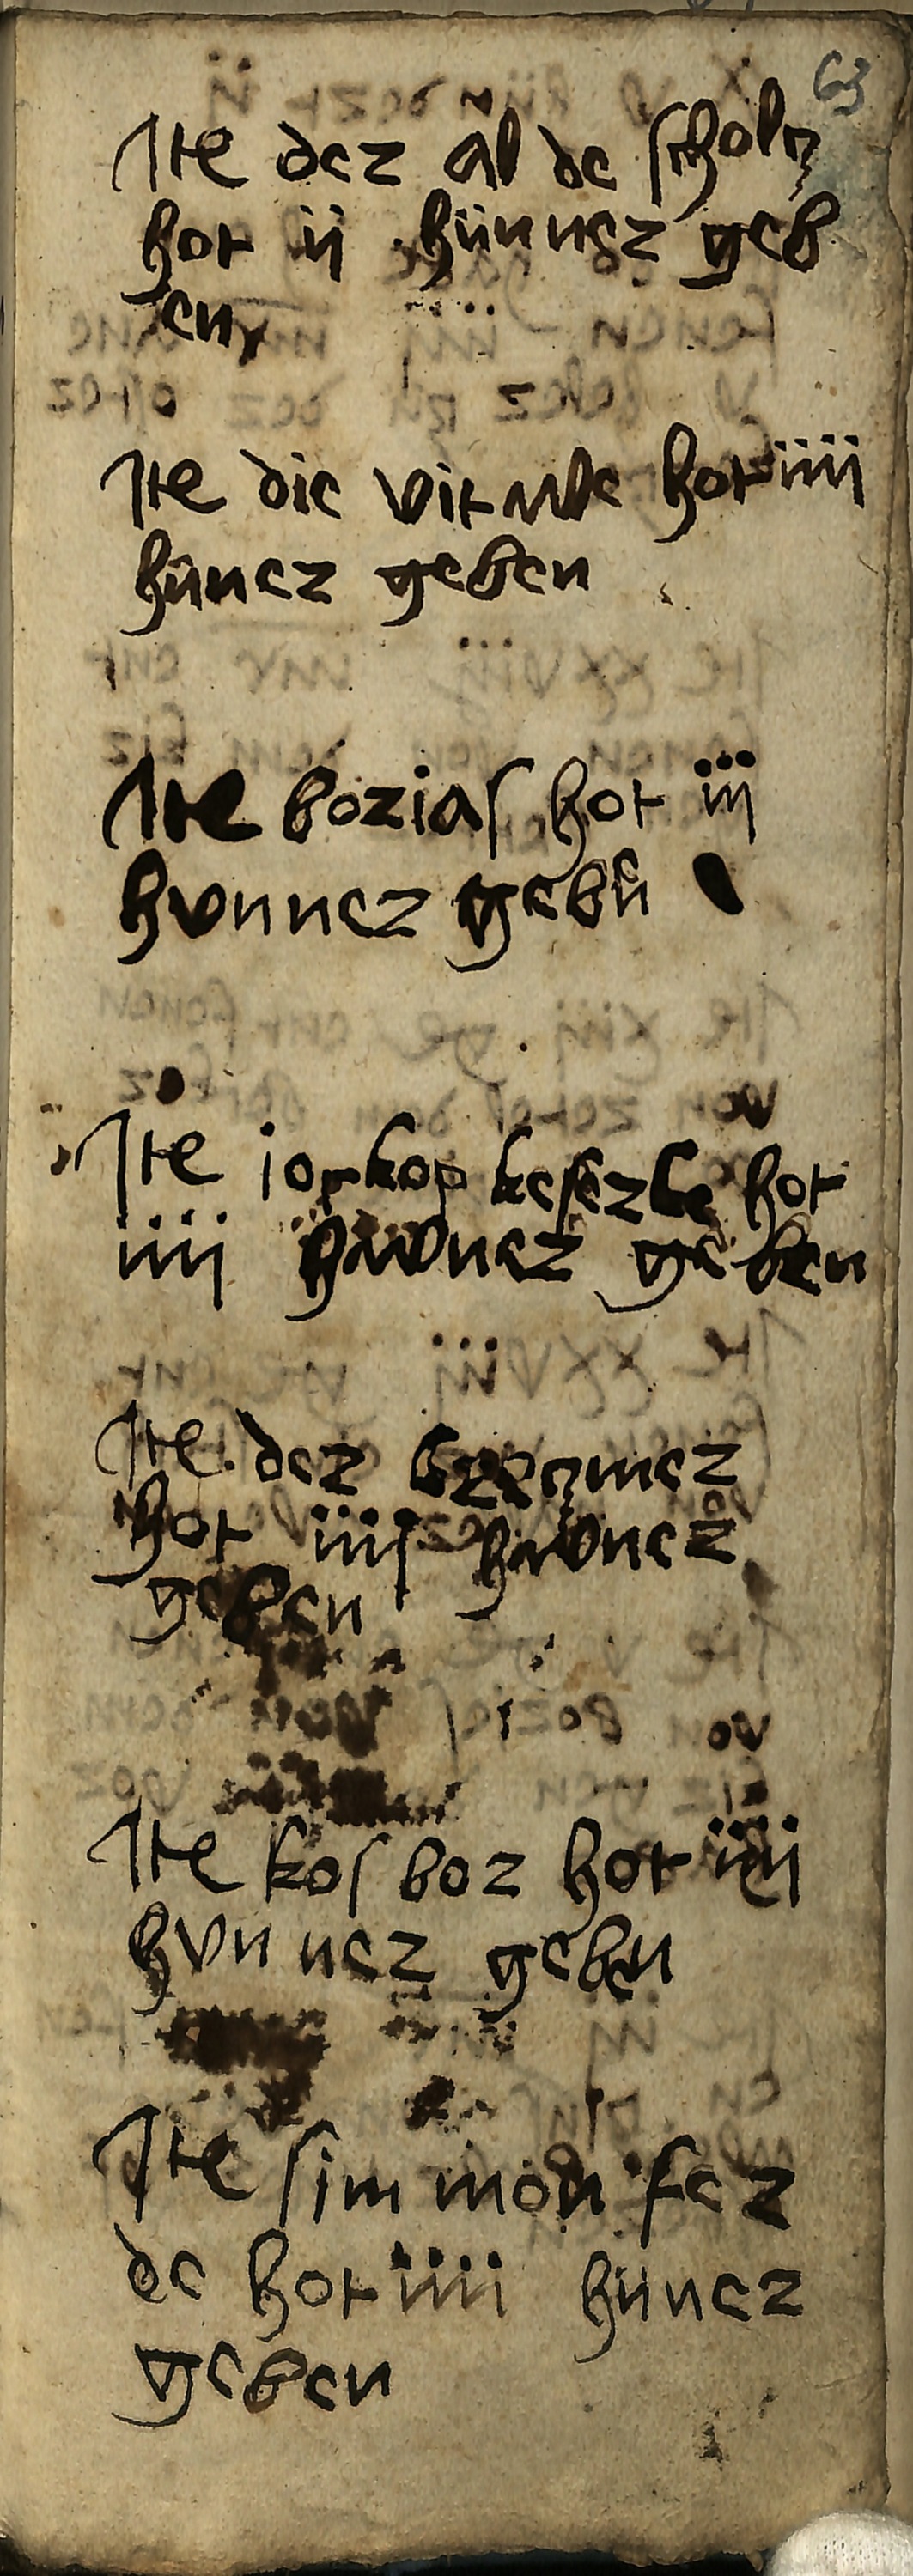 63
Ite der al de scholcz
hot ii hünner geb
en
Ite die vitmbe hot iiii
hüner geben
Ite borias hot iii
hvnner gebn
Ite iorkop keserle hot
iiii hwner geben
Ite der
hot iiii hwner
geben
Ite kos bor hot iiii
hvn ner geben
Ite sim mon fer
de hot iiii hüner
geben